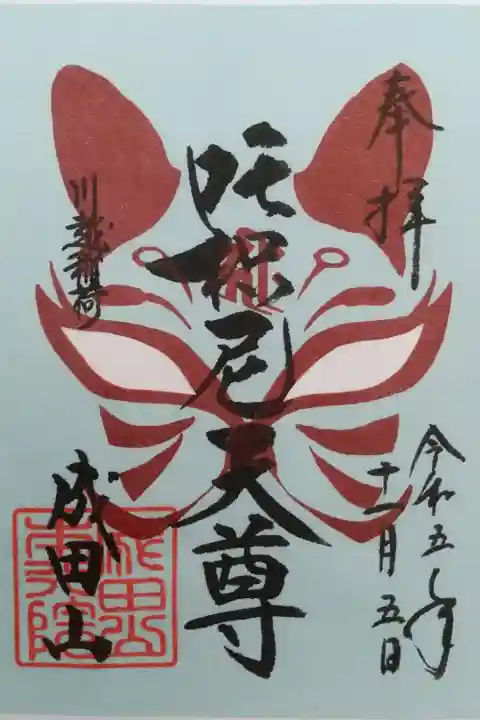 奉拝
令和五年
十一月五日
吒枳尼天尊
川越稲荷
成田山
成田山
本行院